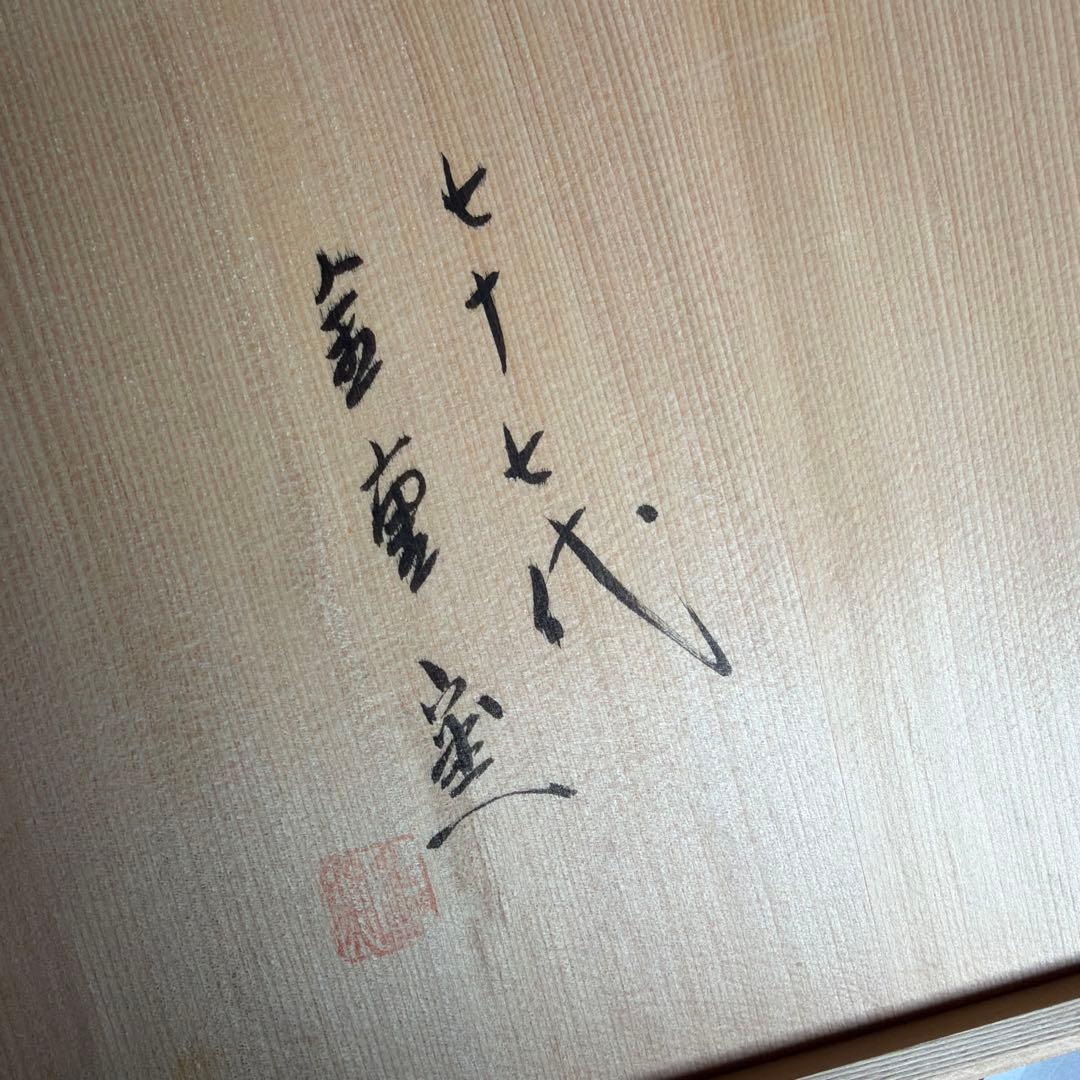 七十七代
金重窯